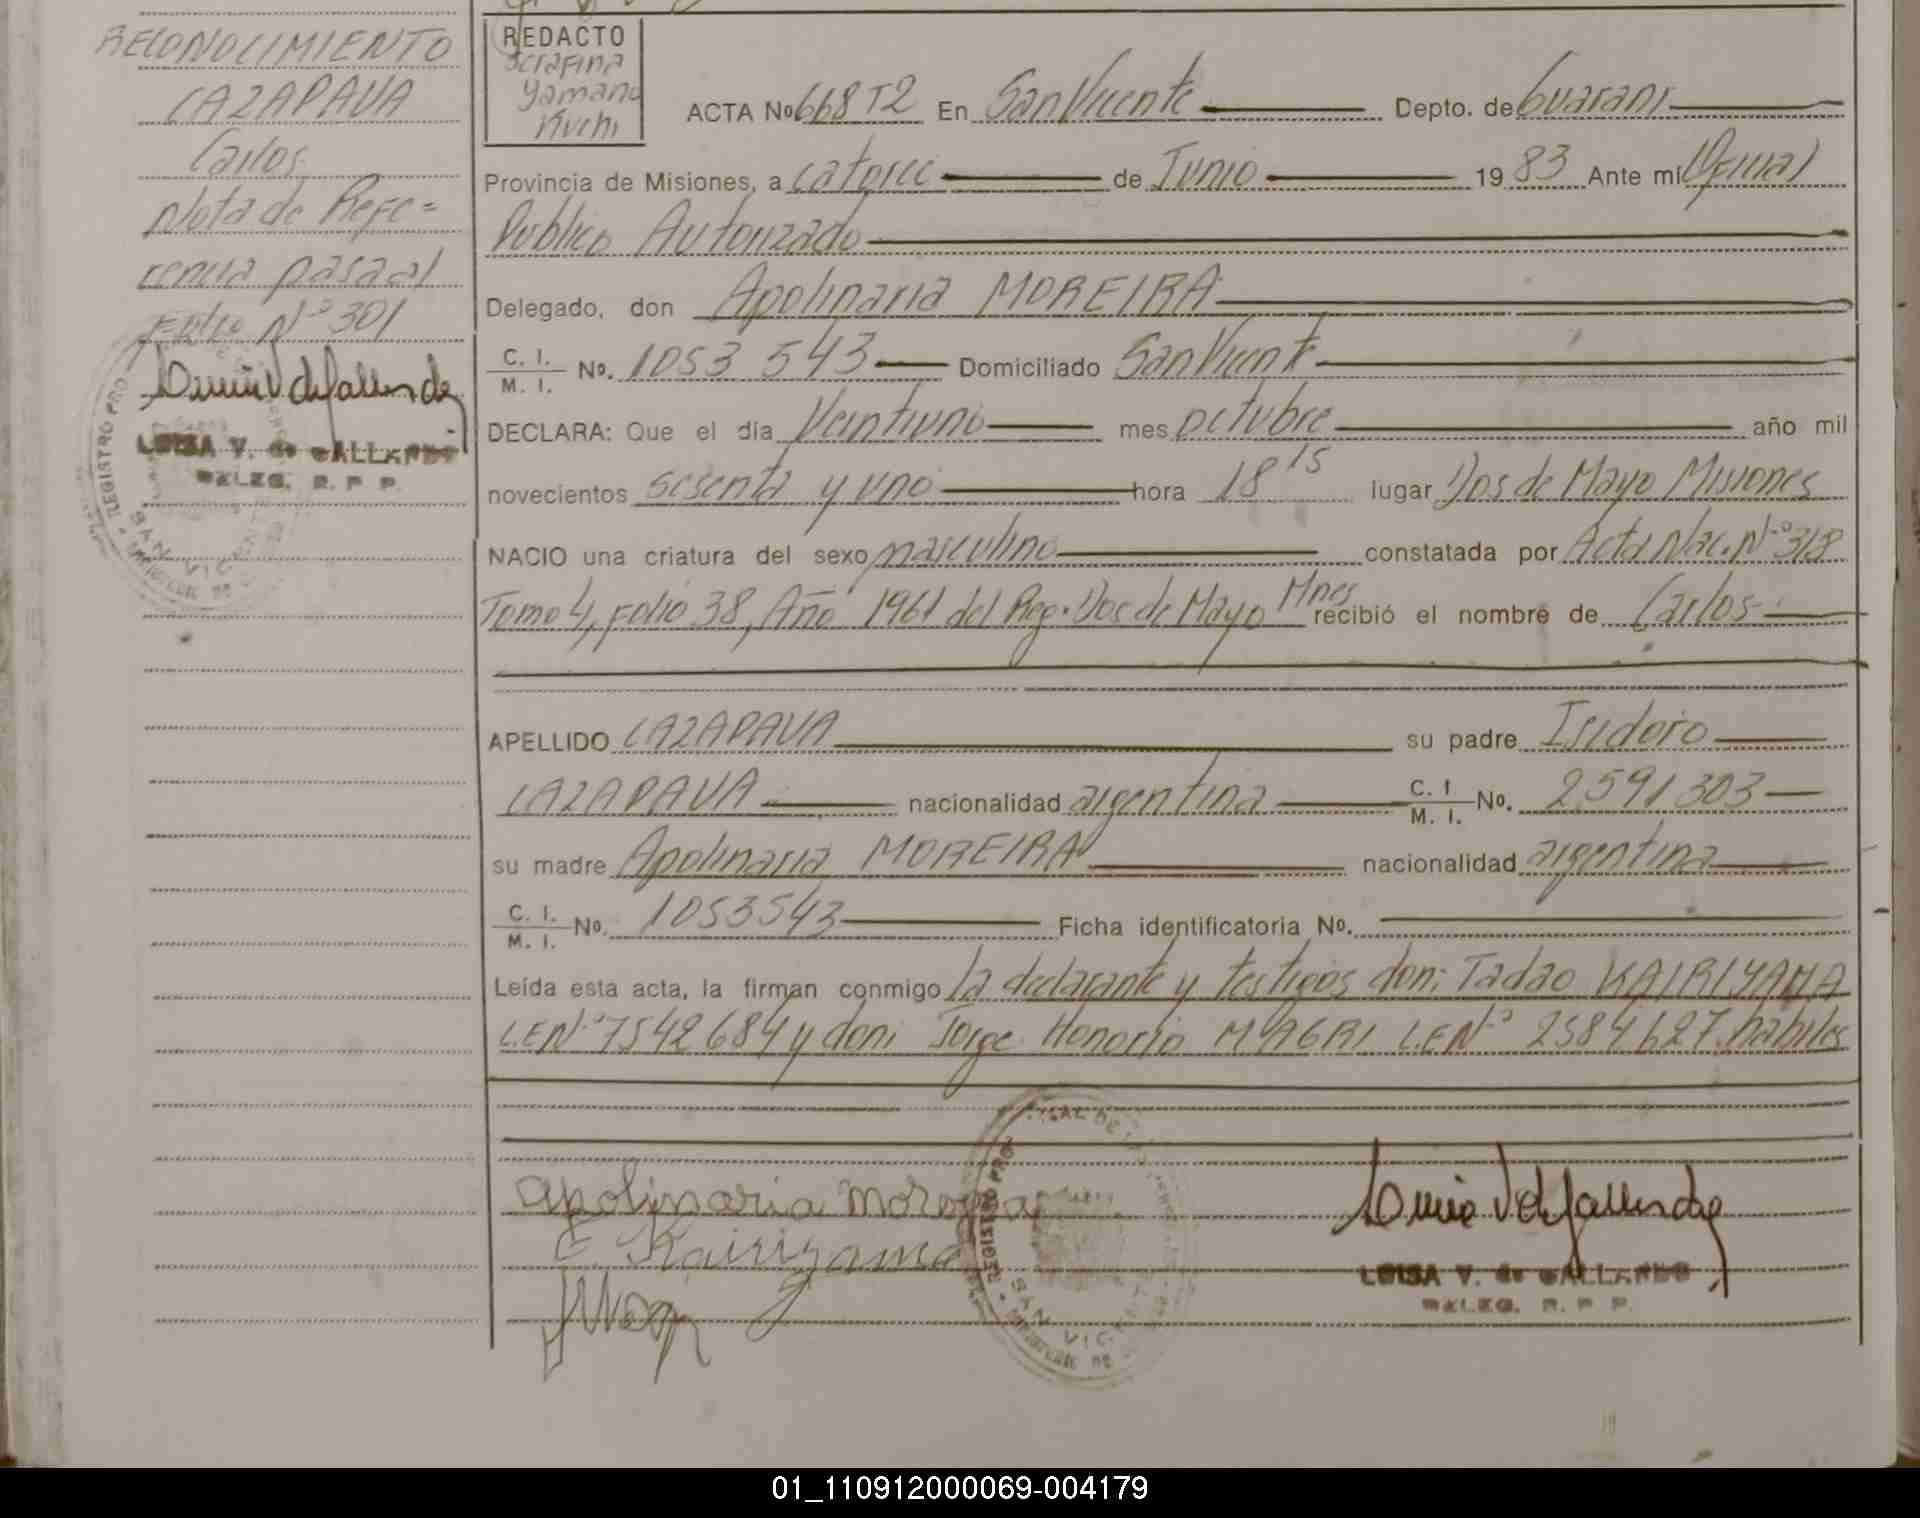 RECONOCIMIENTO
CAZAPAVA
Carlos
Nota de Refe=
rencia pasa al
Folio Nº 301
LUISA V. de GALLARDO
DELEG. R. P. P.
REDACTO
Serafina
Yamano
Kuchi
ACTA Nº 668 T2 En San Vicente Depto. de Guarani
Provincia de Misiones, a catorce de Junio 1983 Ante mi Oficial
Publico Autorizado
Delegado, don Apolinaria MOREIRA
C. I. / M. I. No. 1053 543 Domiciliado San Vicente
DECLARA: Que el día Veintiuno mes octubre año mil
novecientos sesenta y uno hora 18 15 lugar Dos de Mayo Misiones
NACIO una criatura del sexo masculino constatada por Acta Nac. Nº 318
Tomo 4, Folio 38, Año 1961 del Reg. Dos de Mayo Mnes recibió el nombre de Carlos
APELLIDO CAZAPAVA su padre Isidoro
CAZAPAVA nacionalidad argentina C. I / M. I. No. 2591303
su madre Apolinaria MOREIRA nacionalidad argentina
C. I. / M. I. No. 1053543 Ficha identificatoria No.
Leída esta acta, la firman conmigo la declarante y testigos don: Tadao KAIRIYAMA
L.E Nº 7542684 y don: Jorge Honorio MAGRI L.E Nº 2584627 habiles
Apolinaria Moreira
Kairiyama
LUISA V. de GALLARDO
DELEG. R. P. P.
REGISTRO PRO
SAN VICENTE
01_110912000069-004179